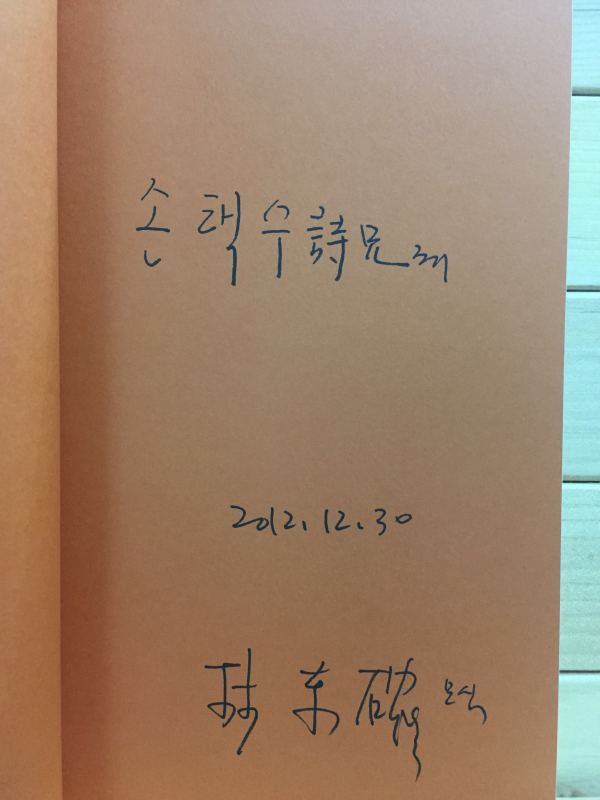 손택수 詩兄께
2012. 12. 30
林 東 確 모심